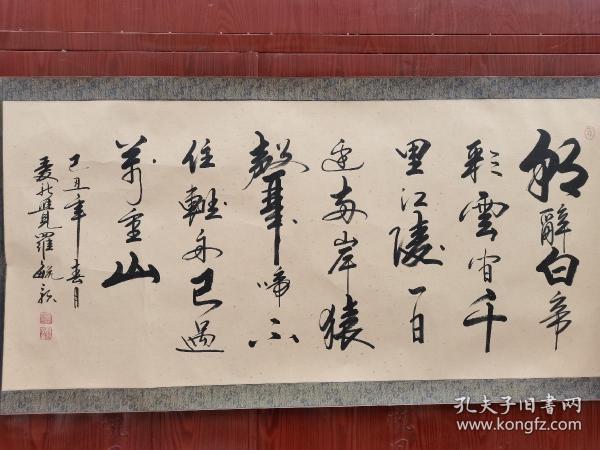 朝辭白帝
彩雲間千
里江陵一日
還兩岸猿
聲啼不
住輕舟已過
萬重山
己丑年春月
愛新覺羅毓
孔夫子旧书网
www.kongfz.com